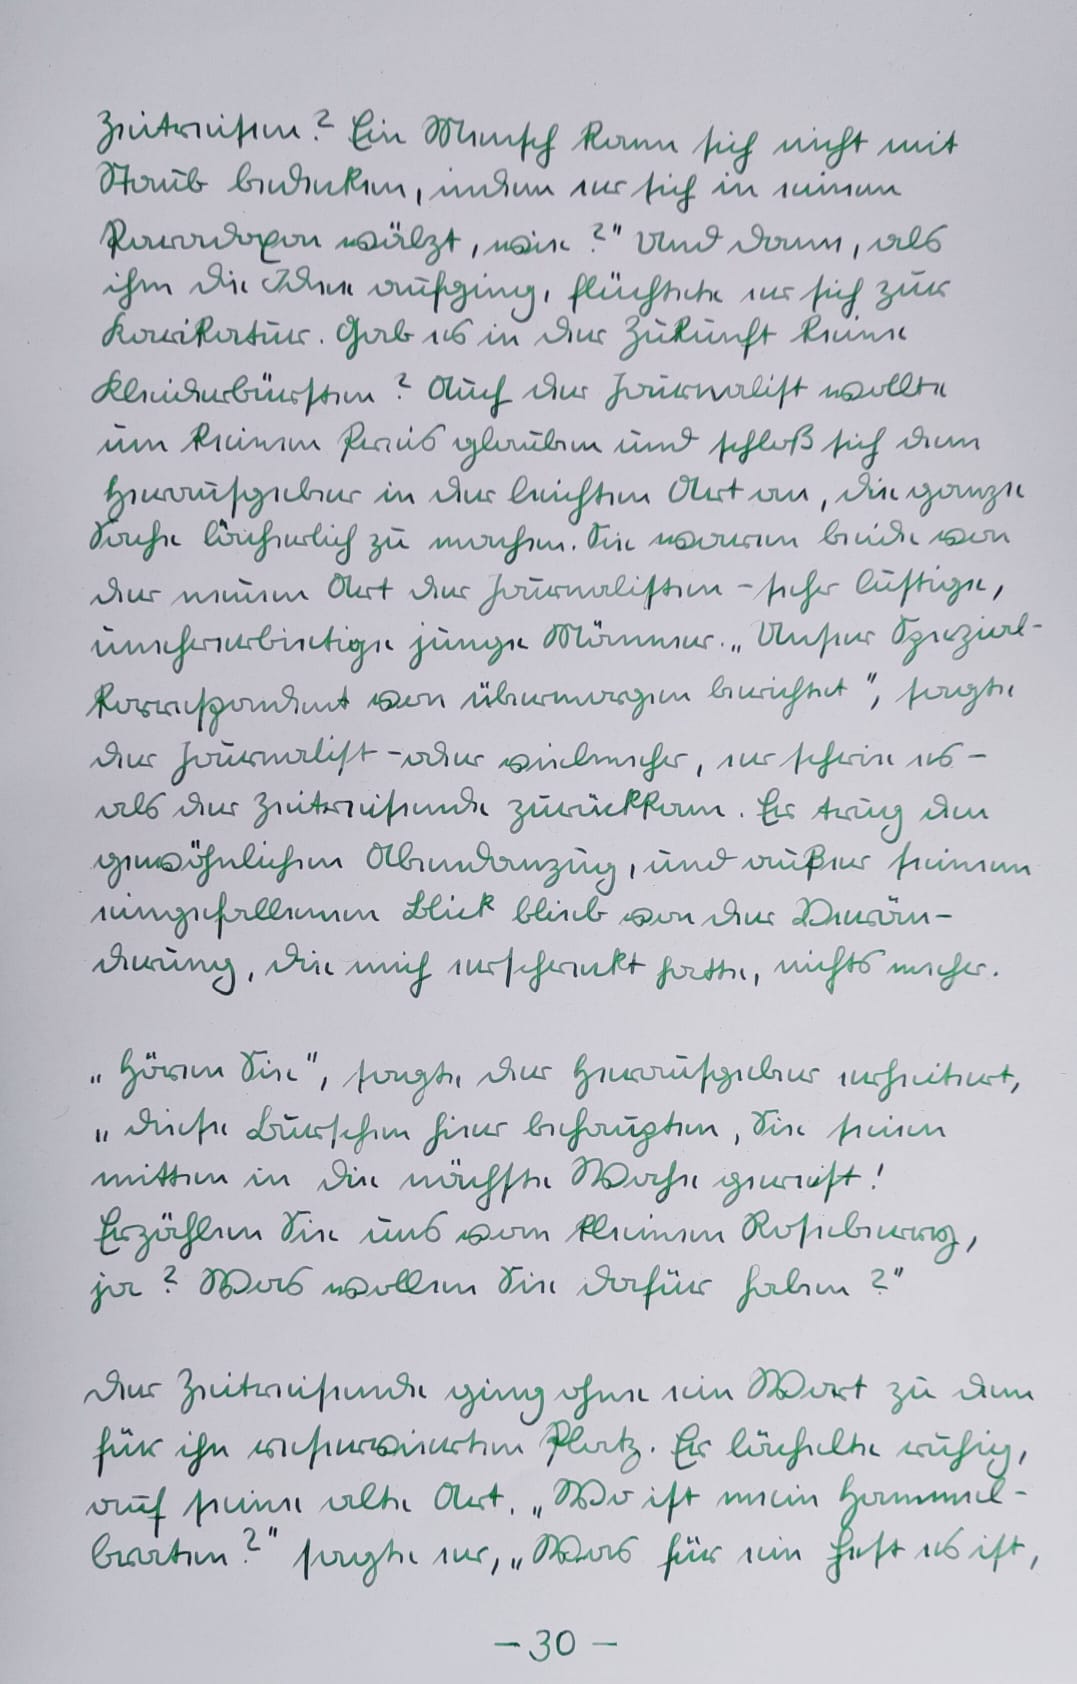 Zeitreisen? Ein Mensch kann sich nicht mit
Staub bedecken, indem er sich in einem
Paradoxon wälzt, wie?" Und dann, als
ihm die Idee aufging, flüchtete er sich zur
Karikatur. Gab es in der Zukunft keine
Kleiderbürsten? Auch der Journalist wollte
um keinen Preis glauben und schloß sich dem
Herausgeber in der leichten Art an, die ganze
Sache lächerlich zu machen. Sie waren beide von
der neuen Art der Journalisten - sehr lustige,
unehrerbietige junge Männer. „Unser Spezial-
korrespondent von übermorgen berichtet", sagte
der Journalist - oder vielmehr, er schrie es -
als der Zeitreisende zurückkam. Er trug den
gewöhnlichen Abendanzug, und außer seinem
eingefallenen Blick blieb von der Verän-
derung, die mich erschreckt hatte, nichts mehr.
„Hören Sie", sagte der Herausgeber erheitert,
„diese Burschen hier behaupten, Sie seien
mitten in die nächste Woche gereist!
Erzählen Sie uns vom kleinen Rosebery,
ja? Was wollen Sie dafür haben?"
Der Zeitreisende ging ohne ein Wort zu dem
für ihn reservierten Platz. Er lächelte ruhig,
auf seine alte Art. „Wo ist mein Hammel-
braten?" sagte er, „Was für ein Fest es ist,
- 30 -